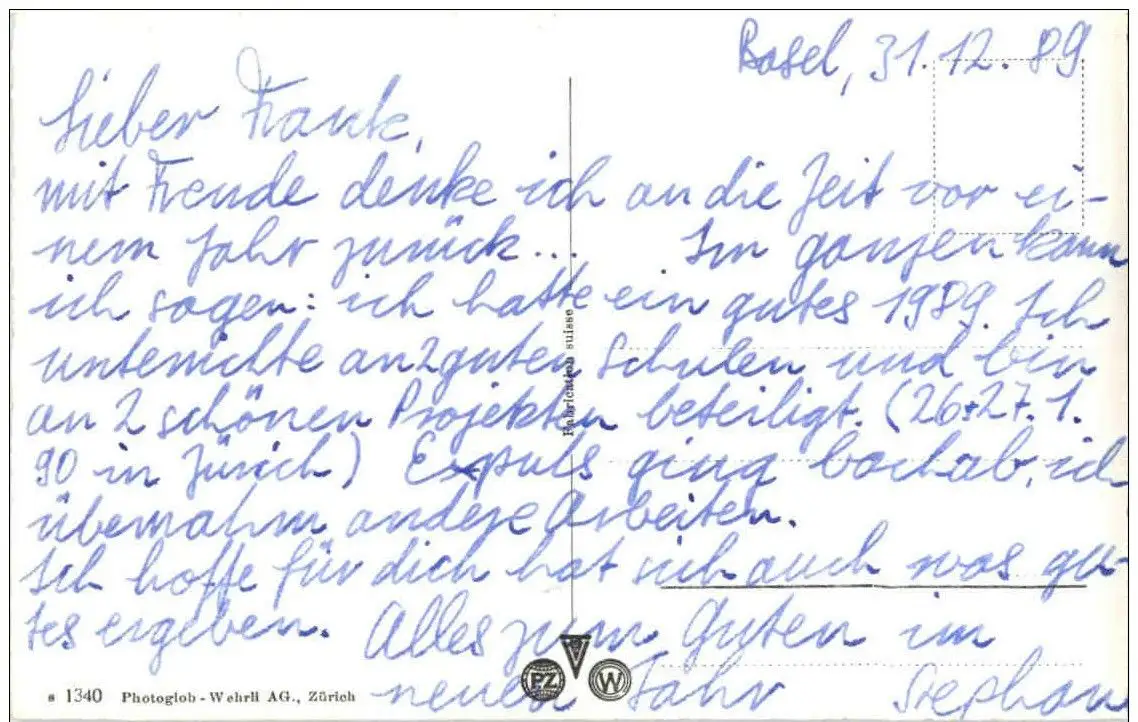 Basel, 31.12.89
Lieber Frank,
mit Freude denke ich an die Zeit vor ei-
nem Jahr zurück... Im ganzen kann
ich sagen: ich hatte ein gutes 1989. Ich
unterrichte an 2 guten Schulen und bin
an 2 schönen Projekten beteiligt. (26+27.1.
90 in Zürich) Expuls ging bachab, ich
übernahm andere Arbeiten.
Ich hoffe für dich hat sich auch was gu-
tes ergeben. Alles zum Guten im
neuen Jahr Stephan
Fabrication suisse
PZ V W
1340 Photoglob-Wehrli AG., Zürich